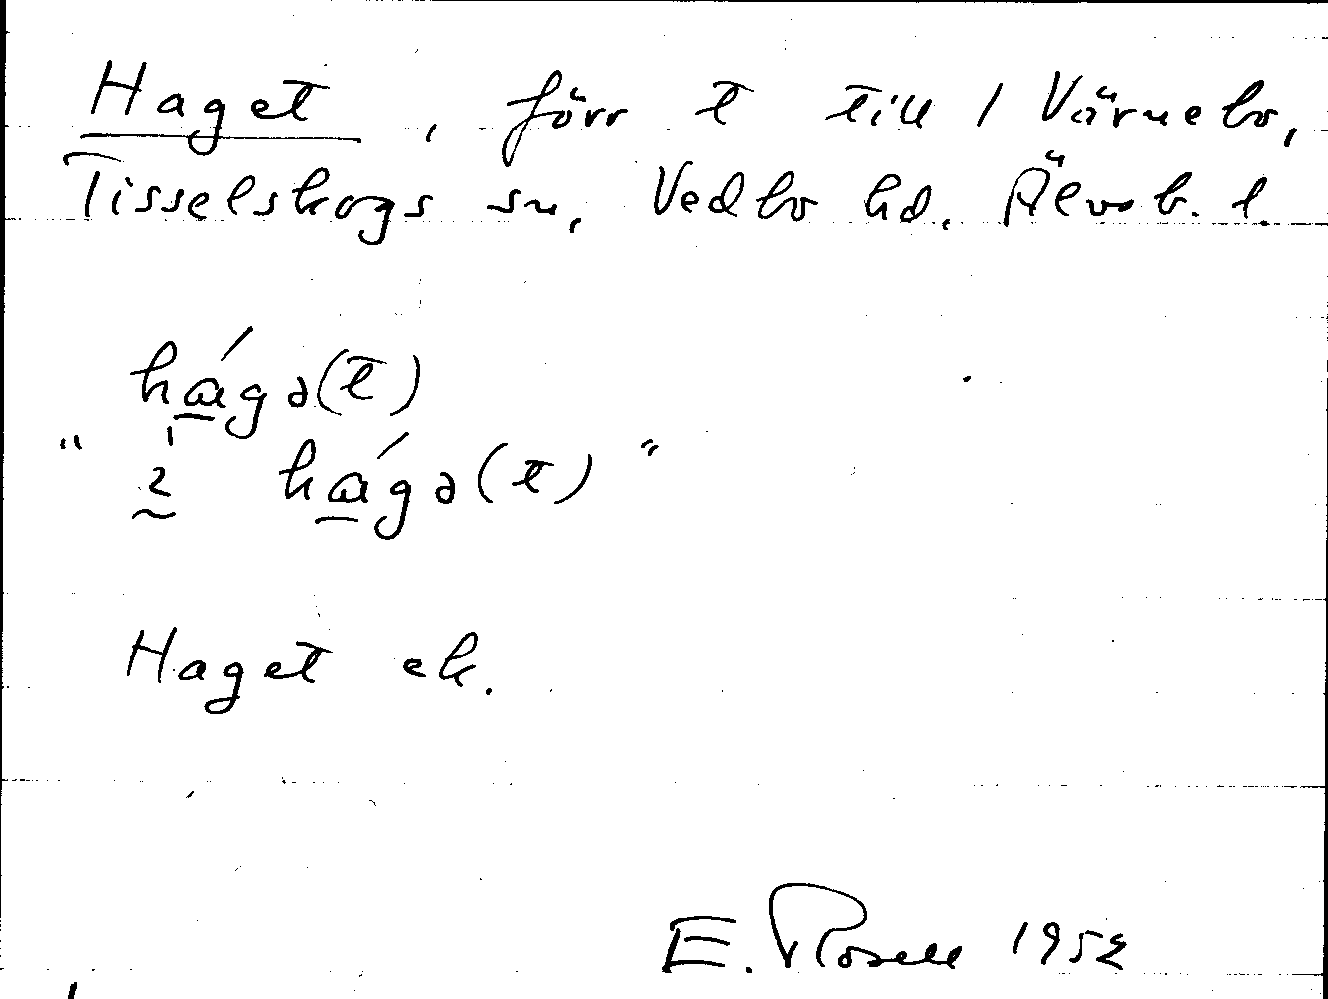 Haget, förr t till 1 Värnebo,
Tisselskogs sn, Vedbo hd. Älvsb. l.
hágə(t)
" ꞌ2 hágə(t) "
Haget ek.
E. Rosell 1952